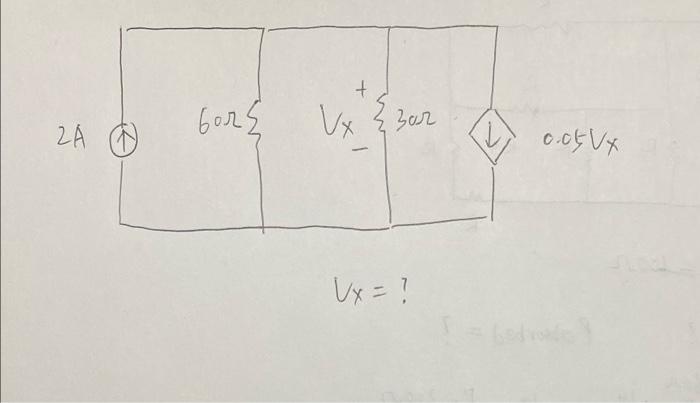 2A
60Ω
+
Vx
−
30Ω
0.05Vx
Vx = ?